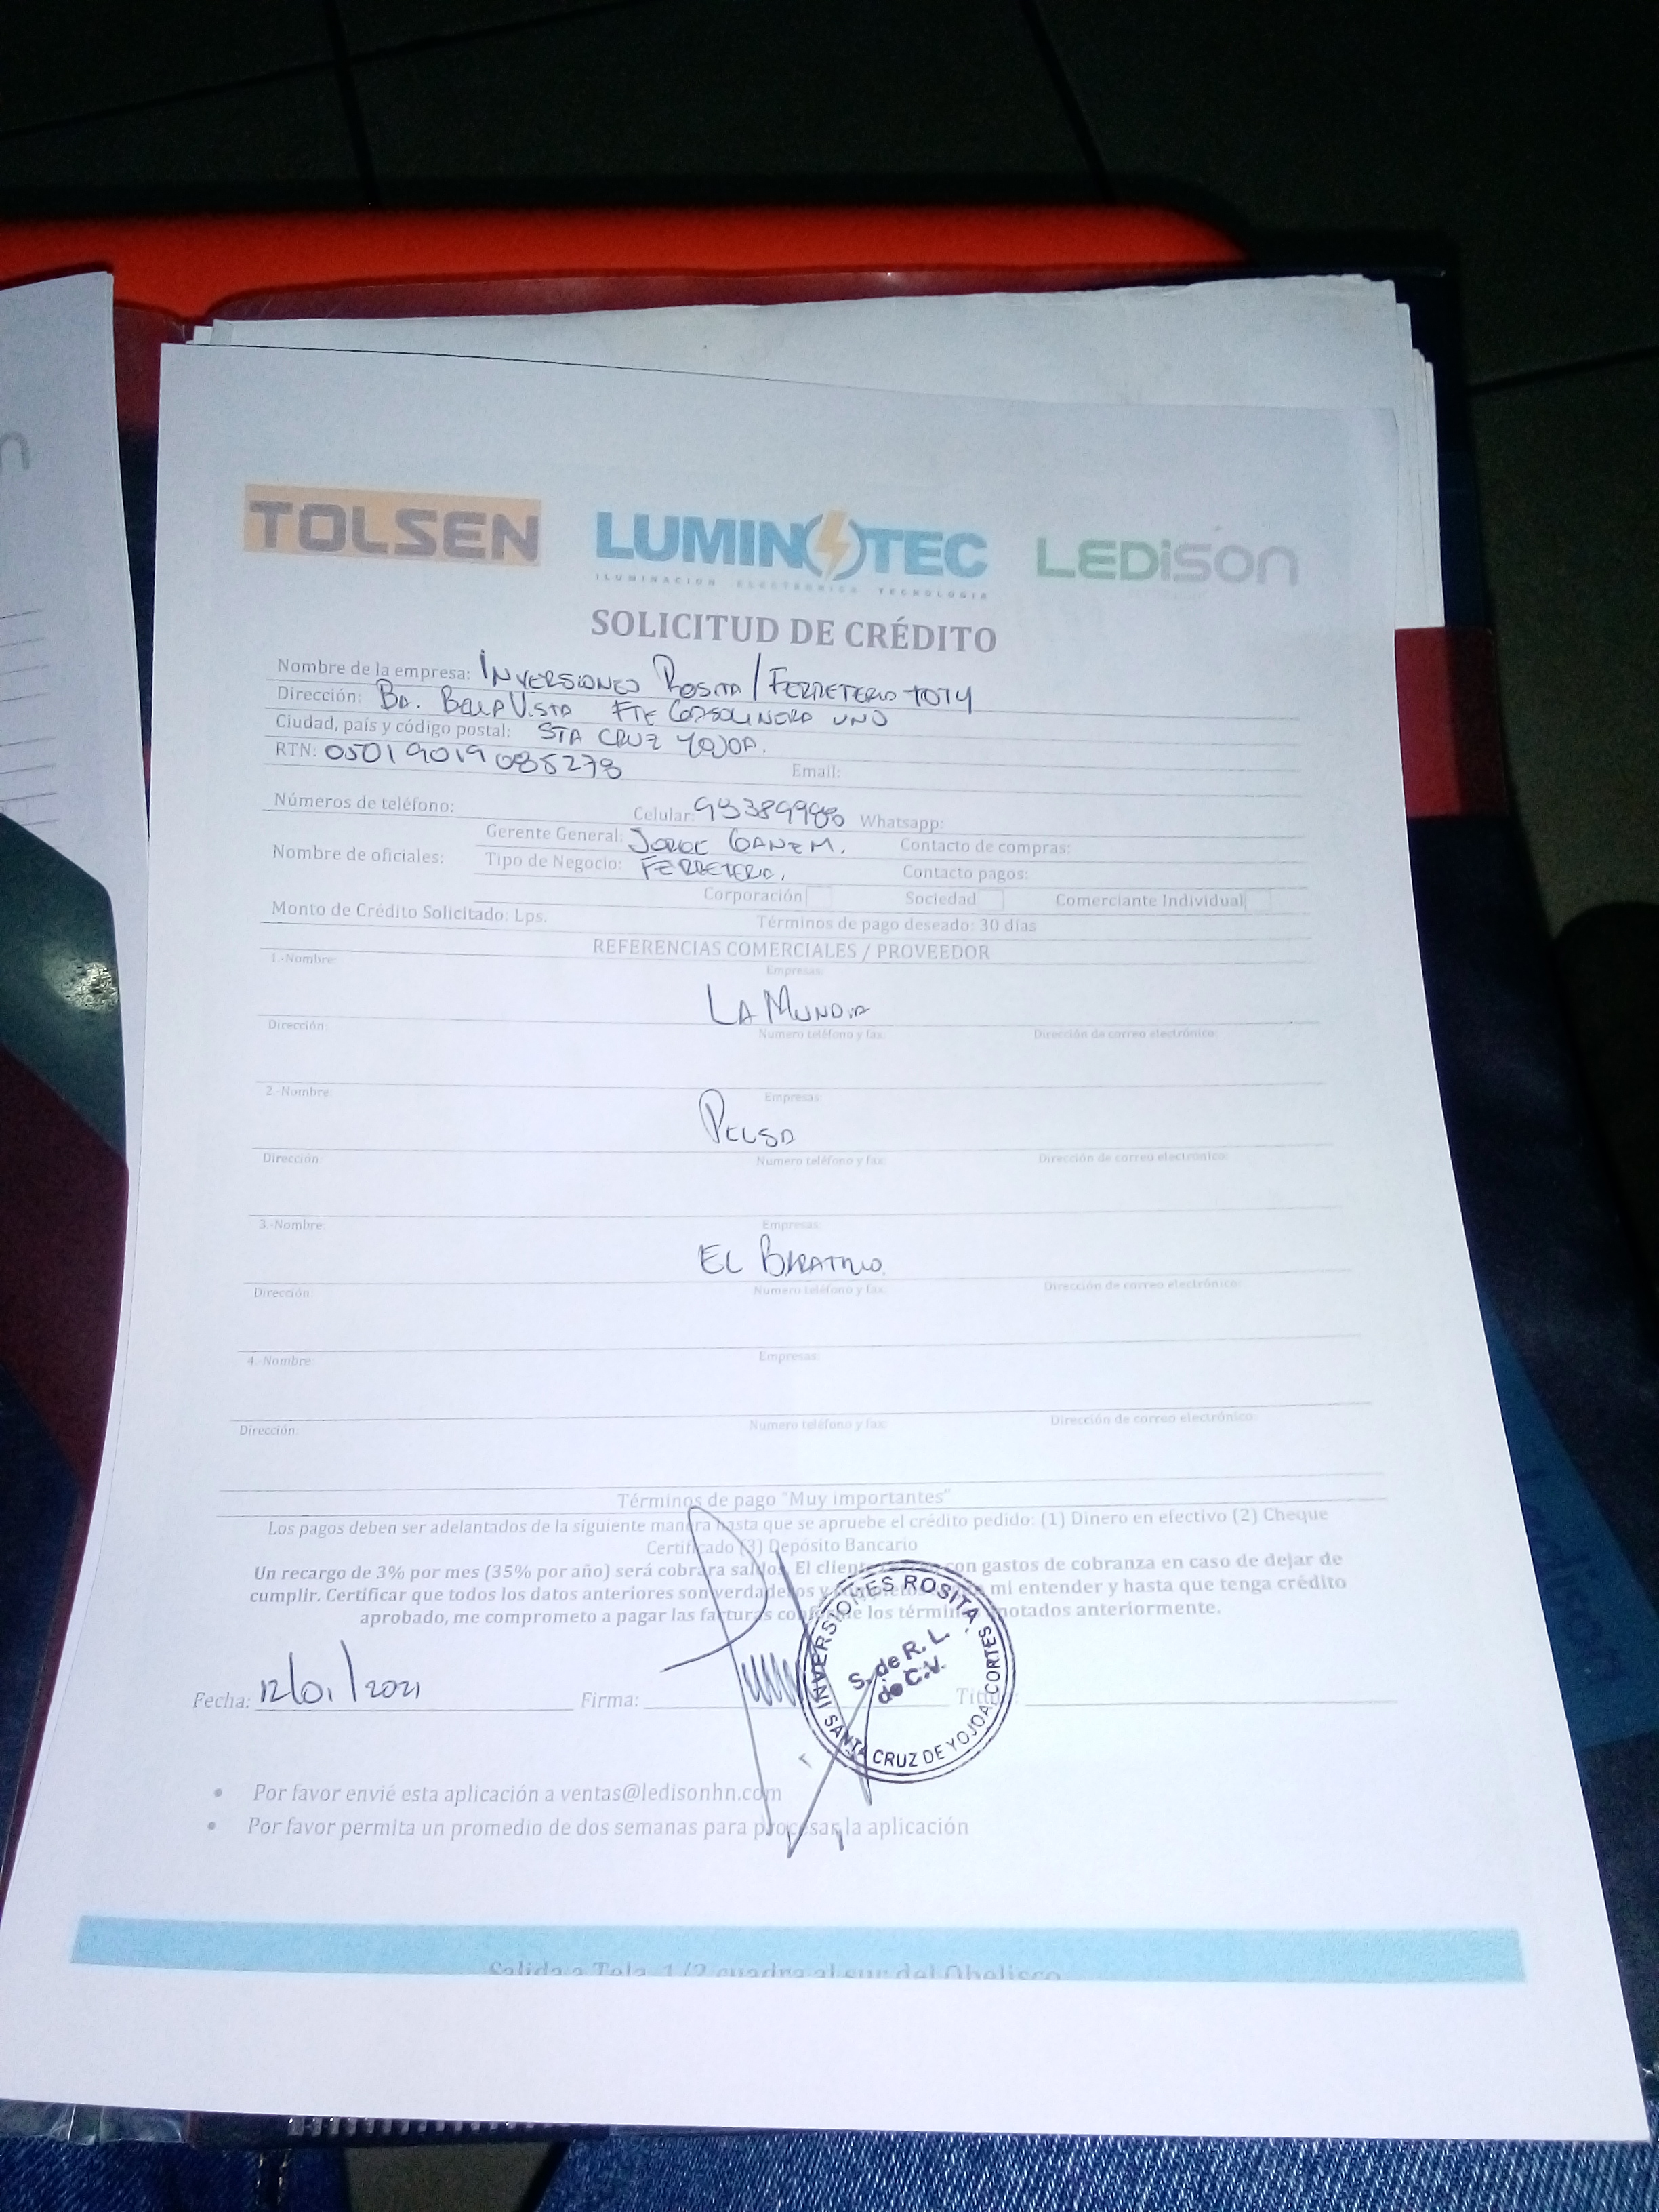 TOLSEN LUMINOTEC LEDiSON
ILUMINACION ELECTRONICA TECNOLOGIA
SOLICITUD DE CRÉDITO
Nombre de la empresa: INVERSIONES ROSITA / FERRETERIA TOTY
Dirección: BO. BELLA VISTA FTE GASOLINERA UNO
Ciudad, país y código postal: STA CRUZ YOJOA.
RTN: 05019019088278 Email:
Números de teléfono: Celular: Whatsapp:
Gerente General: JORGE GANEM. Contacto de compras:
Nombre de oficiales: Tipo de Negocio: FERRETERIA. Contacto pagos:
Corporación Sociedad Comerciante Individual
Monto de Crédito Solicitado: Lps. Términos de pago deseado: 30 días
REFERENCIAS COMERCIALES / PROVEEDOR
1.-Nombre: Empresas:
LA MUNDIA
Dirección: Numero teléfono y fax: Dirección de correo electrónico:
2.-Nombre: Empresas:
Dirección: Numero teléfono y fax: Dirección de correo electrónico:
3.-Nombre: Empresas:
EL BARATILLO.
Dirección: Numero teléfono y fax: Dirección de correo electrónico:
4.-Nombre: Empresas:
Dirección: Numero teléfono y fax: Dirección de correo electrónico:
Términos de pago "Muy importantes"
Los pagos deben ser adelantados de la siguiente manera hasta que se apruebe el crédito pedido: (1) Dinero en efectivo (2) Cheque
Certificado (3) Depósito Bancario
Un recargo de 3% por mes (35% por año) será cobrara saldos. El cliente con gastos de cobranza en caso de dejar de
cumplir. Certificar que todos los datos anteriores son verdaderos y mi entender y hasta que tenga crédito
aprobado, me comprometo a pagar las facturas conforme los términos anotados anteriormente.
INVERSIONES ROSITA
S. de R. L.
de C.V.
SANTA CRUZ DE YOJOA, CORTES
Fecha: 12/01/2021 Firma: Titulo:
• Por favor envié esta aplicación a ventas@ledisonhn.com
• Por favor permita un promedio de dos semanas para procesar la aplicación
Salida a Tela, 1/2 cuadra al sur del Obelisco